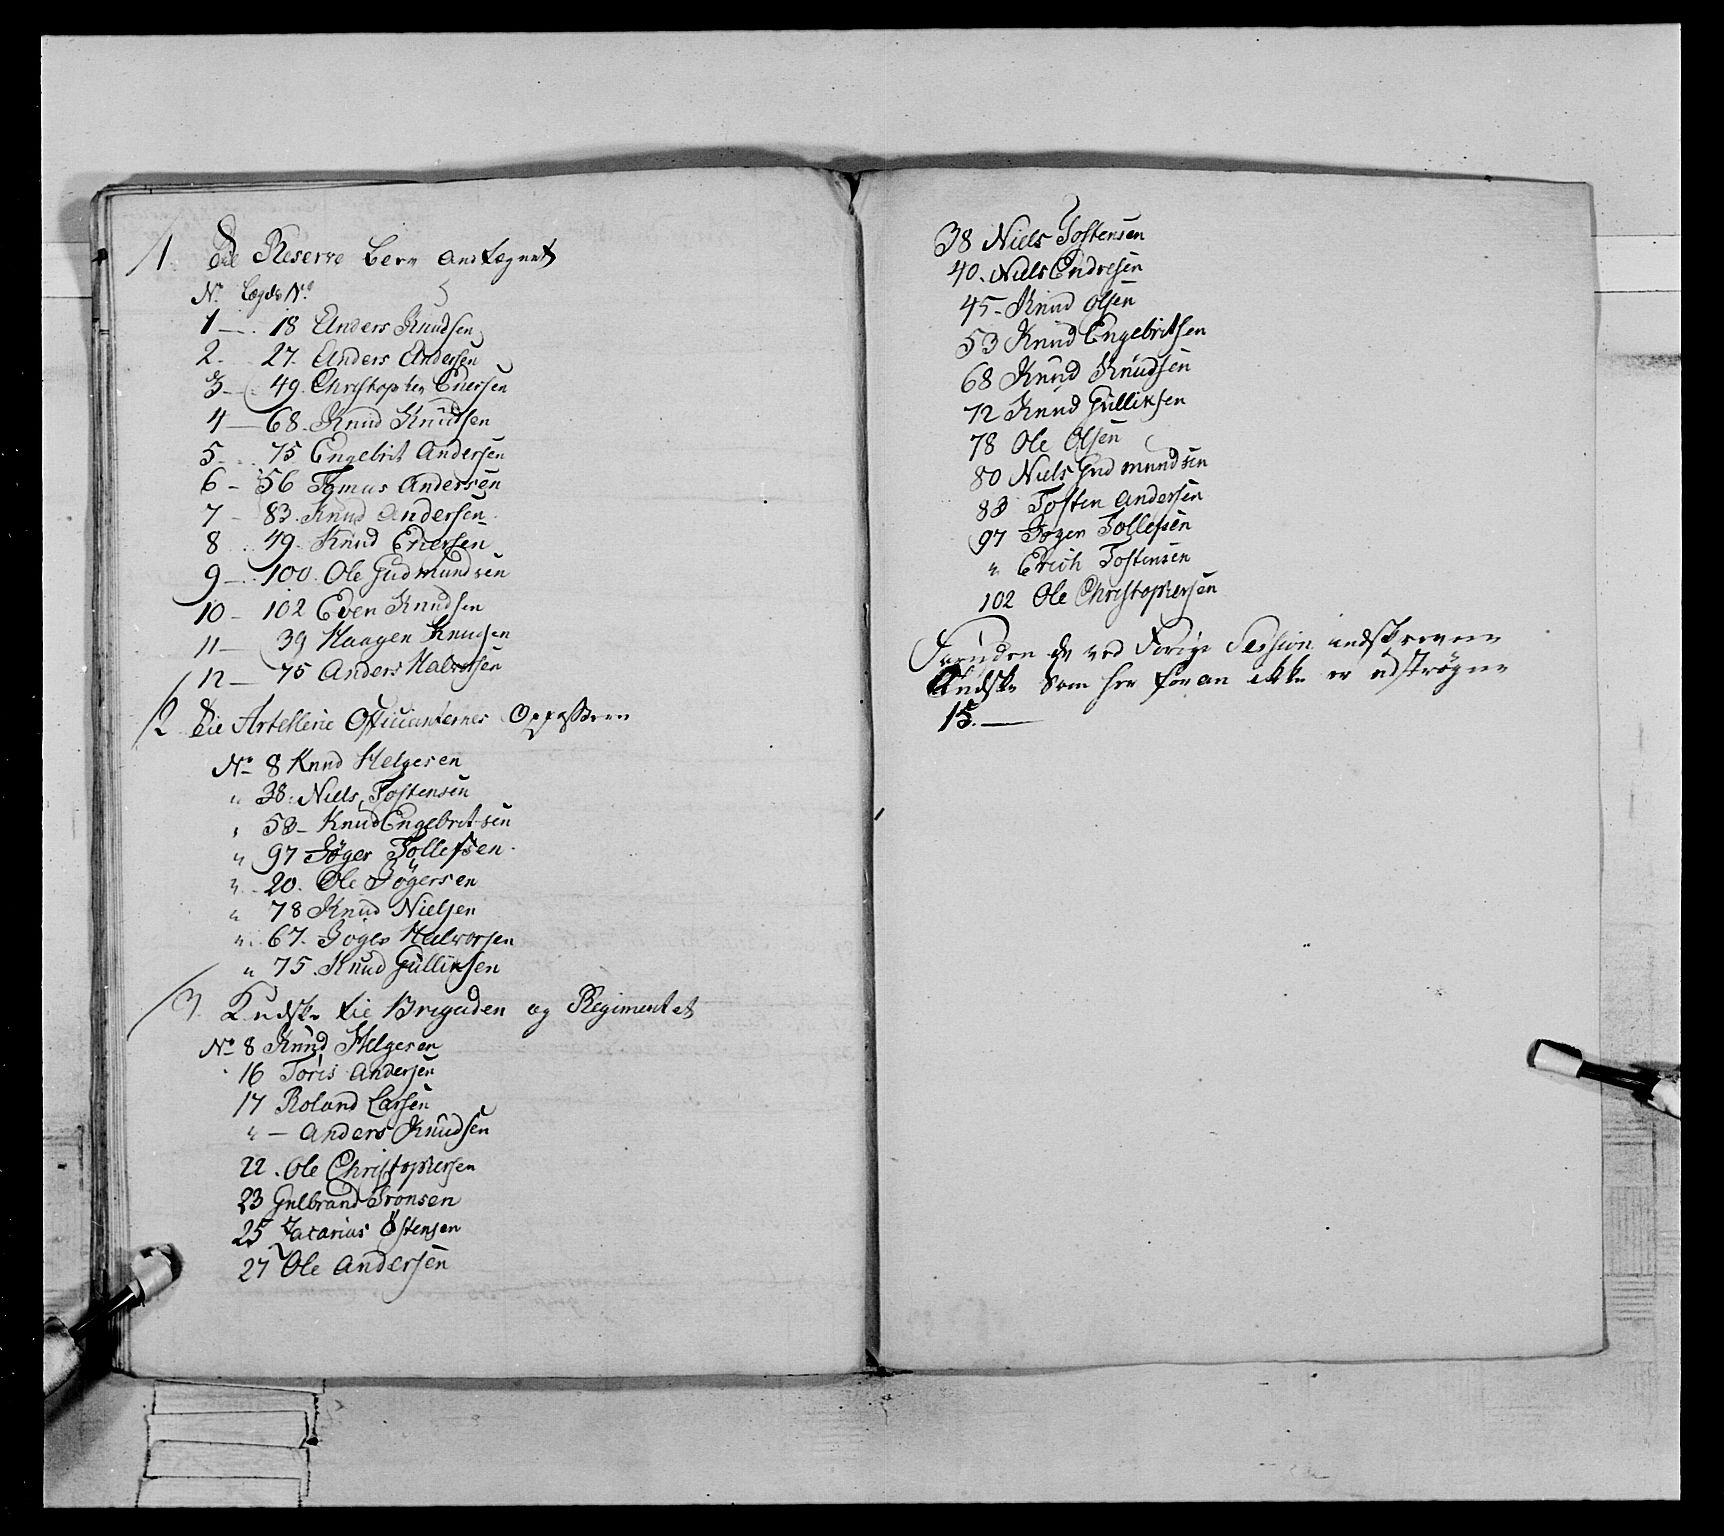 1. til Reserve bere antægnet
No. Lægds No.
1 — 18 Anders Knudsen
2. 27. Anders Andersen
3 — 49. Christopher Eriersen
4 — 68. Knud Knudsen
5 - 75 Engebrit Andersen
6 - 56 Tomas Andersen
7 - 83. Knud Andersen
8 . 49. Knud Eriersen
9 — 100. Ole Gudmundsen
10 - 102 Even Knudsen
11 — 39 Haagen Knudsen
12 — 75 Anders Halvorsen
2 til Artellerie Officianternes Oppassere
No. 8 Knud Helgesen
" 38. Niels Tostensen
" 53 - Knud Engebritsen
" 97 Jöger Tollefsen
" 20. Ole Jögersen
" 78 Knud Nielsen
" 67. Joger Halvorsen
" 75. Knud Gulliksen
3. Kudske til Brigaden og Regimentet
No. 8 Knud Helgesen
16 Toris Andersen
17 Roland Larsen
" — Anders Knudsen
22. Ole Christophersen
23 Gulbrand Tronsen
25 Zacarias Östensen
27 Ole Andersen
38 Niels Tostensen
40. Niels Endresen
45 - Knud Olsen
53 Knud Engebritsen
68 Knud Knudsen
72 Knud Gulliksen
78 Ole Olsen
80 Niels Gudmundsen
83 Tosten Andersen
97 Joger Tollefsen
" Erich Tostensen
102 Ole Christophersen
Foruden de ved Forige Session indskrevne
Kudske som her foran ikke er udströgne
15. —